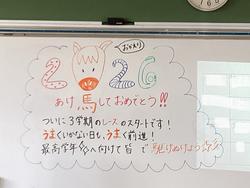 おかえり
2026
あけ馬しておめでとう!!
ついに3学期のレースのスタートです!
うまくいかない日も、うまく前進!
最高学年へ向けて皆で駆けぬけよう